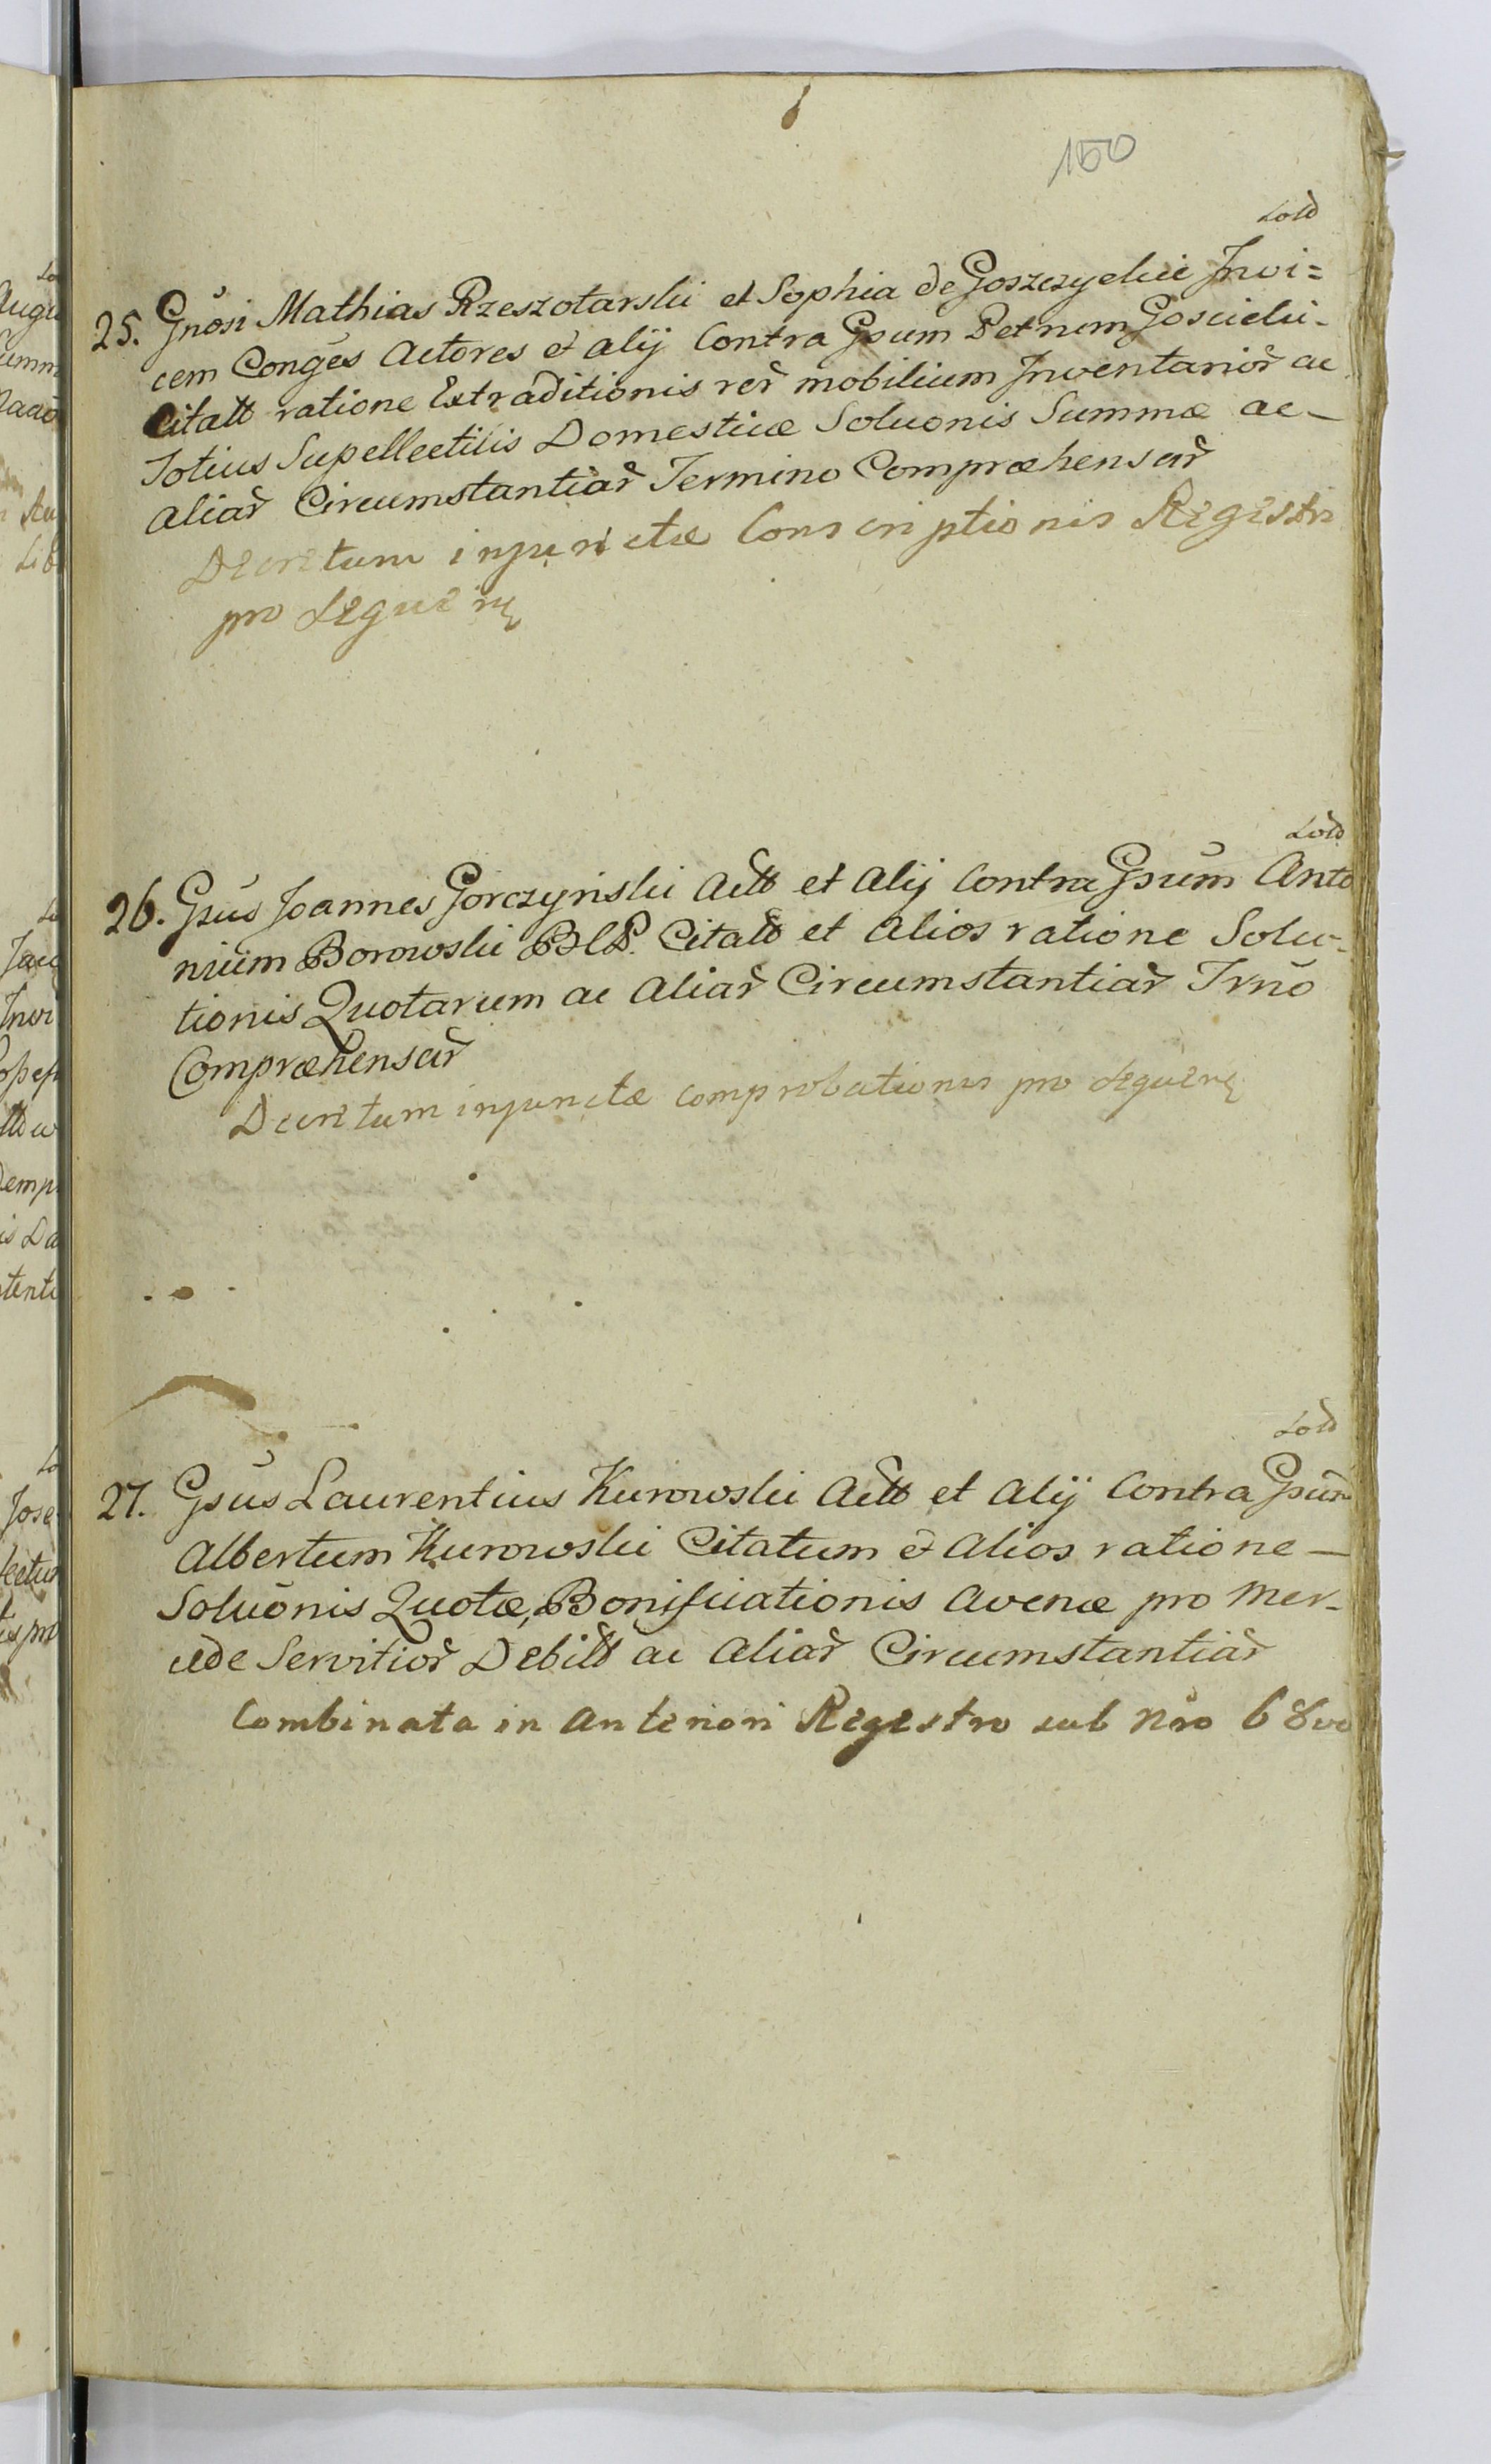 150
Lold
25. Gnosi Mathias Rzeszotarski et Sophia de Goszczyckie Invi=
cem Conges Actores et alij Contra Gsum Petrum Goscicki-
Citatt ratione Extraditionis rer mobilium Inventarior ac
Totius Supellectilis Domesticæ Soluonis Summæ ac-
aliar Circumstantiar Termino Compræhensar
Decretum injunctæ Conscriptionis Regestri
pro seque
26. Gsus Joannes Gorczynski Actt et Alij Contra Gsum Anto
nium Borowski BCP. Citatt et Alios ratione Solu-
tionis Quotarum ac Aliar Circumstantiar Trno
Compræhensar
Decretum injunctæ comprobationis pro seque
27. Gsus Laurentius Kurowski Actt et Alij Contra Gsum
Albertum Kurowski Citatum et Alios ratione-
Soluonis Quotæ, Bonificationis Avenæ pro Mer-
cede Servitior Debitt ac Aliar Circumstantiar
Combinata in Anteriori Regestro sub Nro 68vo